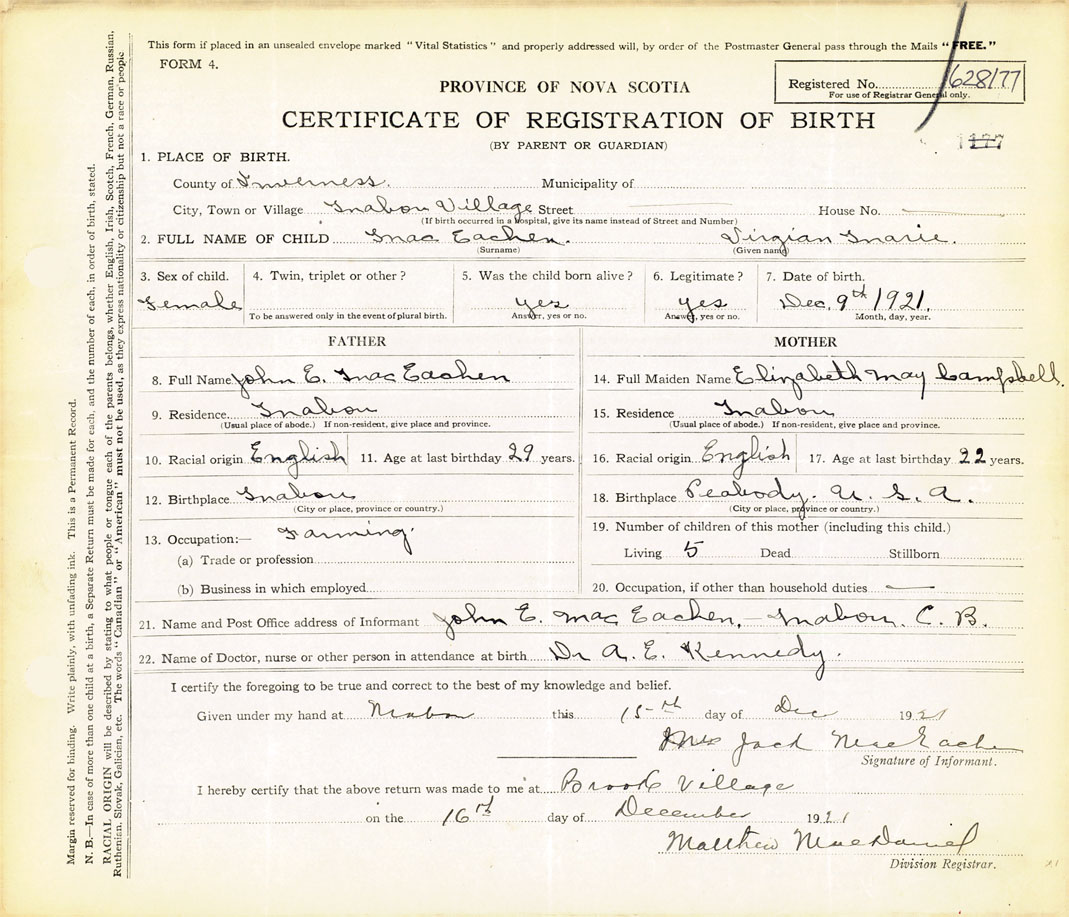 This form if placed in an unsealed envelope marked "Vital Statistics" and properly addressed will, by order of the Postmaster General pass through the Mails "FREE."
FORM 4.
Registered No. 628177
For use of Registrar General only.
PROVINCE OF NOVA SCOTIA
CERTIFICATE OF REGISTRATION OF BIRTH
1177
(BY PARENT OR GUARDIAN)
1. PLACE OF BIRTH.
County of Inverness. Municipality of
City, Town or Village Mabou Village Street House No.
(If birth occurred in a hospital, give its name instead of Street and Number)
2. FULL NAME OF CHILD Mac Eachen. Virgian Marie.
(Surname) (Given name)
3. Sex of child. 4. Twin, triplet or other? 5. Was the child born alive? 6. Legitimate? 7. Date of birth.
Female yes yes Dec. 9th 1921.
To be answered only in the event of plural birth. Answer, yes or no. Answer, yes or no. Month, day, year.
FATHER MOTHER
8. Full Name John E. Mac Eachen 14. Full Maiden Name Elizabeth May Campbell.
9. Residence Mabou 15. Residence Mabou
(Usual place of abode.) If non-resident, give place and province. (Usual place of abode.) If non-resident, give place and province.
10. Racial origin English 11. Age at last birthday 29 years. 16. Racial origin English 17. Age at last birthday 22 years.
12. Birthplace Mabou 18. Birthplace Peabody. U. S. A.
(City or place, province or country.) (City or place, province or country.)
13. Occupation:— Farming. 19. Number of children of this mother (including this child.)
(a) Trade or profession Living 5 Dead Stillborn
(b) Business in which employed 20. Occupation, if other than household duties —
21. Name and Post Office address of Informant John E. Mac Eachen, - Mabou. C. B.
22. Name of Doctor, nurse or other person in attendance at birth Dr A. E. Kennedy.
I certify the foregoing to be true and correct to the best of my knowledge and belief.
Given under my hand at Mabou this 15th day of Dec 1921
Mrs Jack MacEachen
Signature of Informant.
I hereby certify that the above return was made to me at Brook Village
on the 16th day of December 1921
Matthew MacDaniel
Division Registrar.
Margin reserved for binding. Write plainly, with unfading ink. This is a Permanent Record.
N. B.—In case of more than one child at a birth, a Separate Return must be made for each, and the number of each, in order of birth, stated.
RACIAL ORIGIN will be described by stating to what people or tongue each of the parents belongs, whether English, Irish, Scotch, French, German, Russian,
Ruthenian, Slovak, Galician, etc. The words "Canadian" or "American" must not be used, as they express nationality or citizenship but not a race or people.